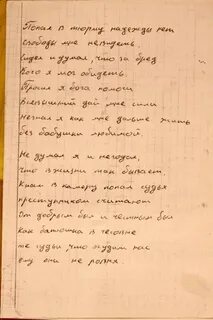 Попал в тюрьму надежды нет
свободы мне не видеть
Сидел и думал, что за бред
Кого я мог обидеть.
Просил я бога помочи
Всевышний дай мне силы
Не знал я как мне дальше жить
без бабушки любимой.
Не думал я и не гадал,
что в жизни так бывает
К нам в камеру попал судья
преступником считали
Он добрым был и честным был
Как батюшка в
те судьи, что судили нас
ему они не ровня.